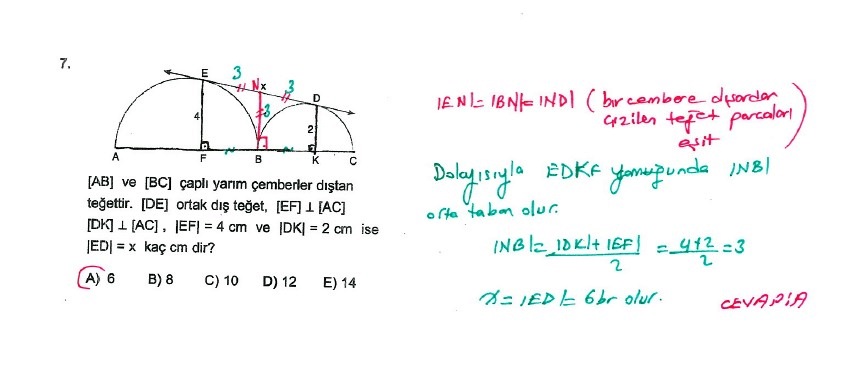 7.
E 3 Nx 3 D
4 3 2
A F B K C
[AB] ve [BC] çaplı yarım çemberler dıştan
teğettir. [DE] ortak dış teğet, [EF] ⊥ [AC]
[DK] ⊥ [AC] , |EF| = 4 cm ve |DK| = 2 cm ise
|ED| = x kaç cm dir?
A) 6 B) 8 C) 10 D) 12 E) 14
|EN| = |BN| = |ND| ( bir çembere dışardan
çizilen teğet parçaları
eşit )
Dolayısıyla EDKF yamuğunda |NB|
orta taban olur.
|NB| = |DK| + |EF| / 2 = 4+2 / 2 = 3
x = |ED| = 6 br olur.
CEVAP: A